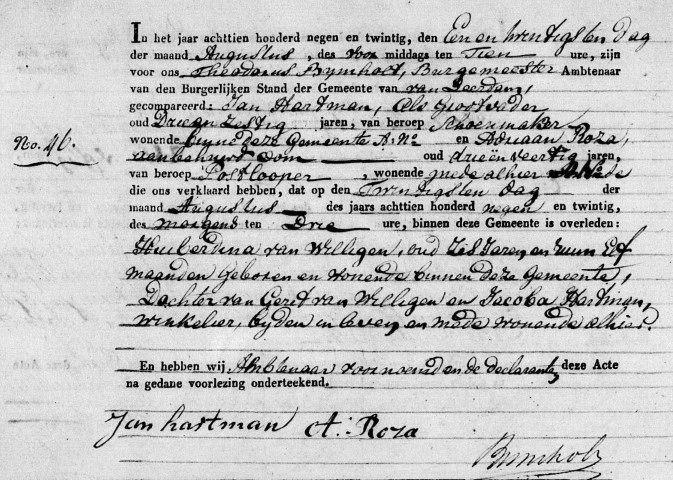 In het jaar achttien honderd negen en twintig, den Een en twintigsten dag
der maand Augustus, des voor middags ten Tien ure, zijn
voor ons Theodorus Burgemeester Ambtenaar
van den Burgerlijken Stand der Gemeente van van Leerdam,
gecompareerd: Jan Hartman, Als Grootvader
oud Drie en Zestig jaren, van beroep Schoenmaker
No. 46.
wonende binne deze Gemeente A. No en Adriaan Roza,
aanbehuwd oom oud drieën veertig jaren,
van beroep Postlooper, wonende mede alhier
die ons verklaard hebben, dat op den Twintigsten dag der
maand Augustus des jaars achttien honderd negen en twintig,
des morgens ten Drie ure, binnen deze Gemeente is overleden:
Huiberdina van Willigen, oud Zes Jaren, en ruim Elf
maanden geboren en wonende binnen deze Gemeente,
Dochter van Gerit van Willigen en Jacoba Hartman,
winkelier, byden in leven, en mede wonende alhier.
En hebben wij Ambtenaar voornoemd en de declaranten, deze Acte
na gedane voorlezing onderteekend.
Jan hartman A. Roza